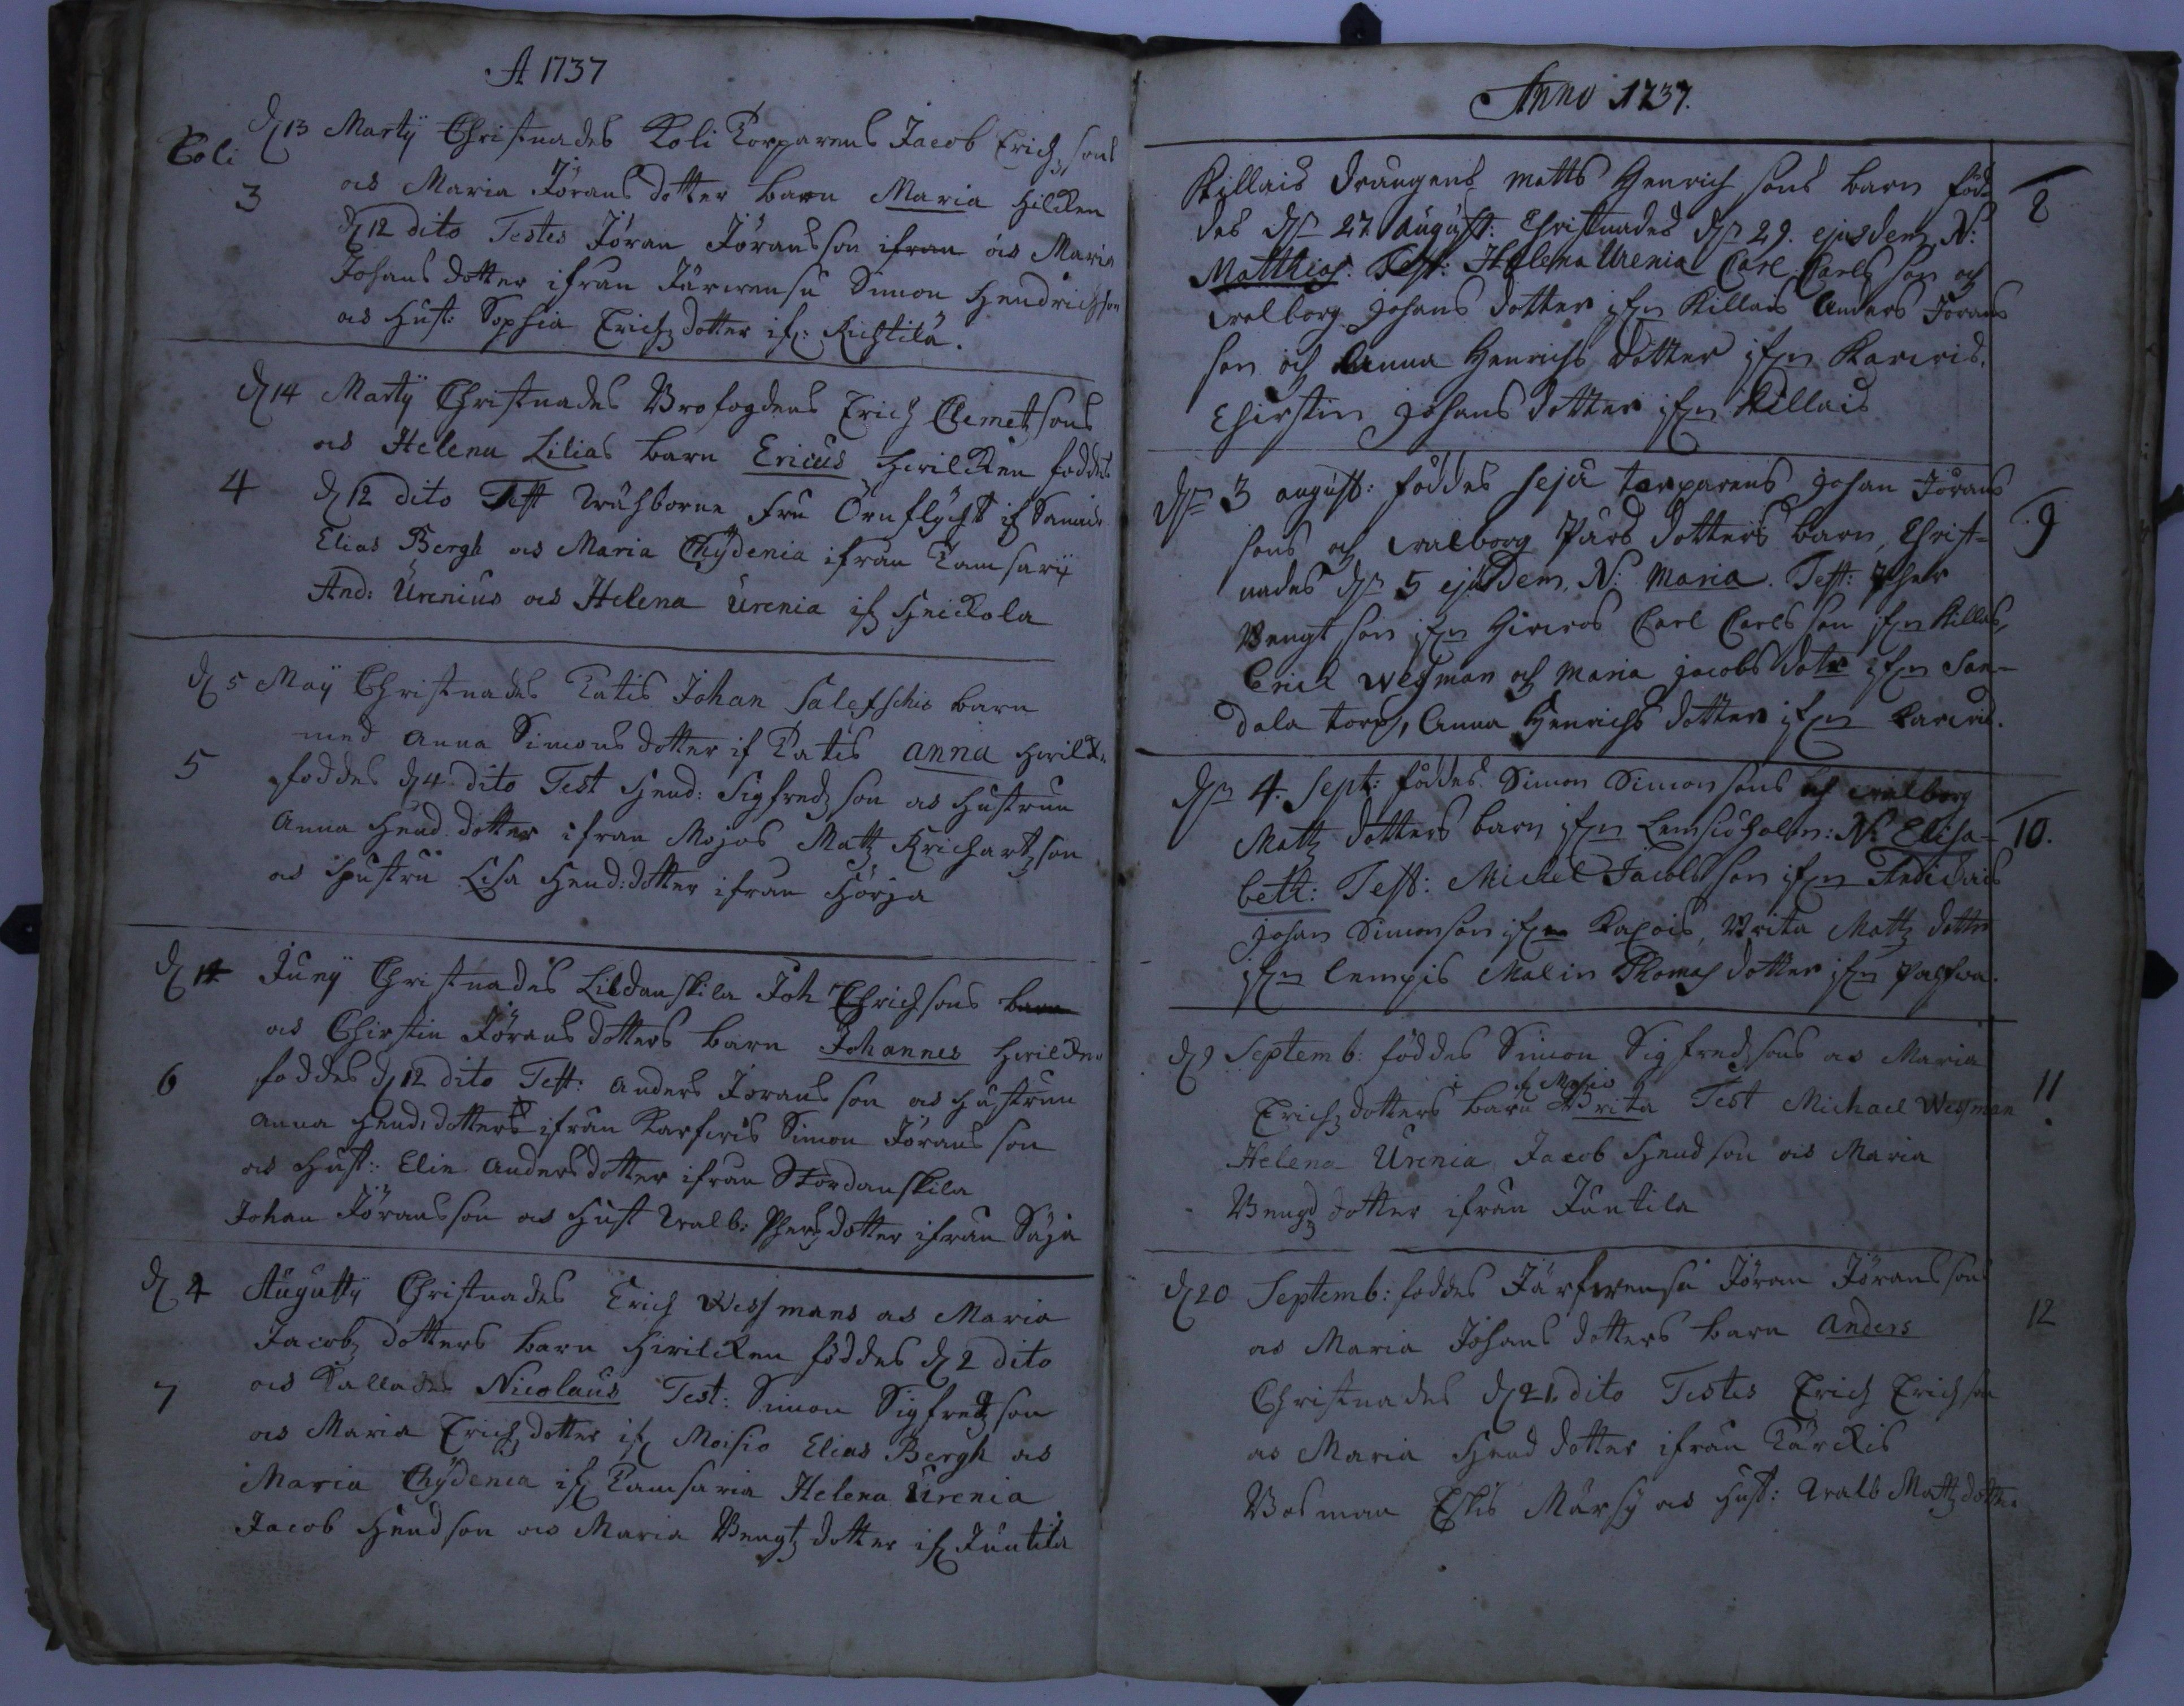 A 1737
Koli d 13 Martÿ Christnades Koli Torparens Jacob Erichsons
3 as Maria Jörans dotter barn Maria hilcken
d 12 dito Testes Jöran Jöransson ifran as Maria
Johans dotter ifran Järwensu Simon Hendrichson
as Hust: Sophia Erichz dotter if: Richtilä.
d 14 Martÿ Christnades Brofogdens Erich Clemetsons
as Helena Lilias barn Ericus hwilcken foddes
4 d 12 dito Test Wälborne Fru Örnflycht if
Elias Bergh as Maria Chÿdenia ifrån Tamsarÿ
And: Urenius as Helena Urenia if Heickola
d 5 Maÿ Christnades Tatis Johan barn
med Anna Simons dotter if Tatis Anna hwilk:
5 foddes d 4 dito Test Hend: Sigfredz son as hustrun
Anna Hend. dotter ifran Mojos Mattz Krichartz son
as hustru Lisa Hend: dotter ifran Hörja
d 14 Junÿ Christnades Lildanskila Joh Ehrichsons barn
as Chirstin Jörans dotters barn Johannes hwilcken
6 foddes d 12 dito Test: Anders Jörans son as hustrun
Anna Hend: dotters ifrån Karfwis Simon Jörans son
as Hust: Elin Anders dotter ifran Stordanskila
Johan Jöransson as Hust Walb: Phersdotter ifran Säjä
d 4 Augustÿ Christnades Erich Wessmans as Maria
Jacobz dotters barn hwilcken föddes d 2 dito
7 as Kallades Nicolaus Test: Simon Sigfredz son
as Maria Erichz dotter if Moisio Elias Bergh as
Maria Chÿdenia if Tamsaria Helena Urenia
Jacob Hendson as Maria Bengtz dotter if Juntila
Anno 1737.
Killais drängens Matts Henrich sons barn föd- 8
des d 27 August: Christnades d 29. ejusdem, N:
Matthias. Test: Helena Urenia Carl Carls son och
Walborg Johans dotter if Killais Anders Jörans
son och Anna Henrichs dotter if Karwis.
Chirstin Johans dotter if Killais
d 3 August: föddes Seja torparens Johan Jörans
sons och Walborg Pärs dotters barn, Christ- 9
nades d 5 ejusdem, N: Maria. Test: Pher
Bengt son if Hirwos Carl Carls son if Killas,
Erick Wesman och Maria Jacobs dotr if San-
dala torp, Anna Henrichs dotter if Karwis.
d 4. Sept: föddes Simon Simon sons och Walborg
Mattz dotters barn if Lemsiöholm: N: Elisa- 10.
beth: Test: Michel Jacobs son if
Johan Simonson if Kapois, Brita Mattz dotter
if Lempis Malin Thomas dotter if
d 9 Septemb: föddes Simon Sigfredsons as Maria
if Moisio
Erichz dotters barn Brita Test Michael Wesman 11
Helena Urenia Jacob Hendson as Maria
Bengdz dotter ifrån Juntila
d 20 Septemb: foddes Järfwensu Jöran Jöransons
as Maria Johans dotters barn Anders 12
Christnades d 21 dito Testes Erich Erichson
as Maria Hend dotter ifrån Kärckis
Bosman Eskis Märsÿ as Hust: Walb Mattz dotter